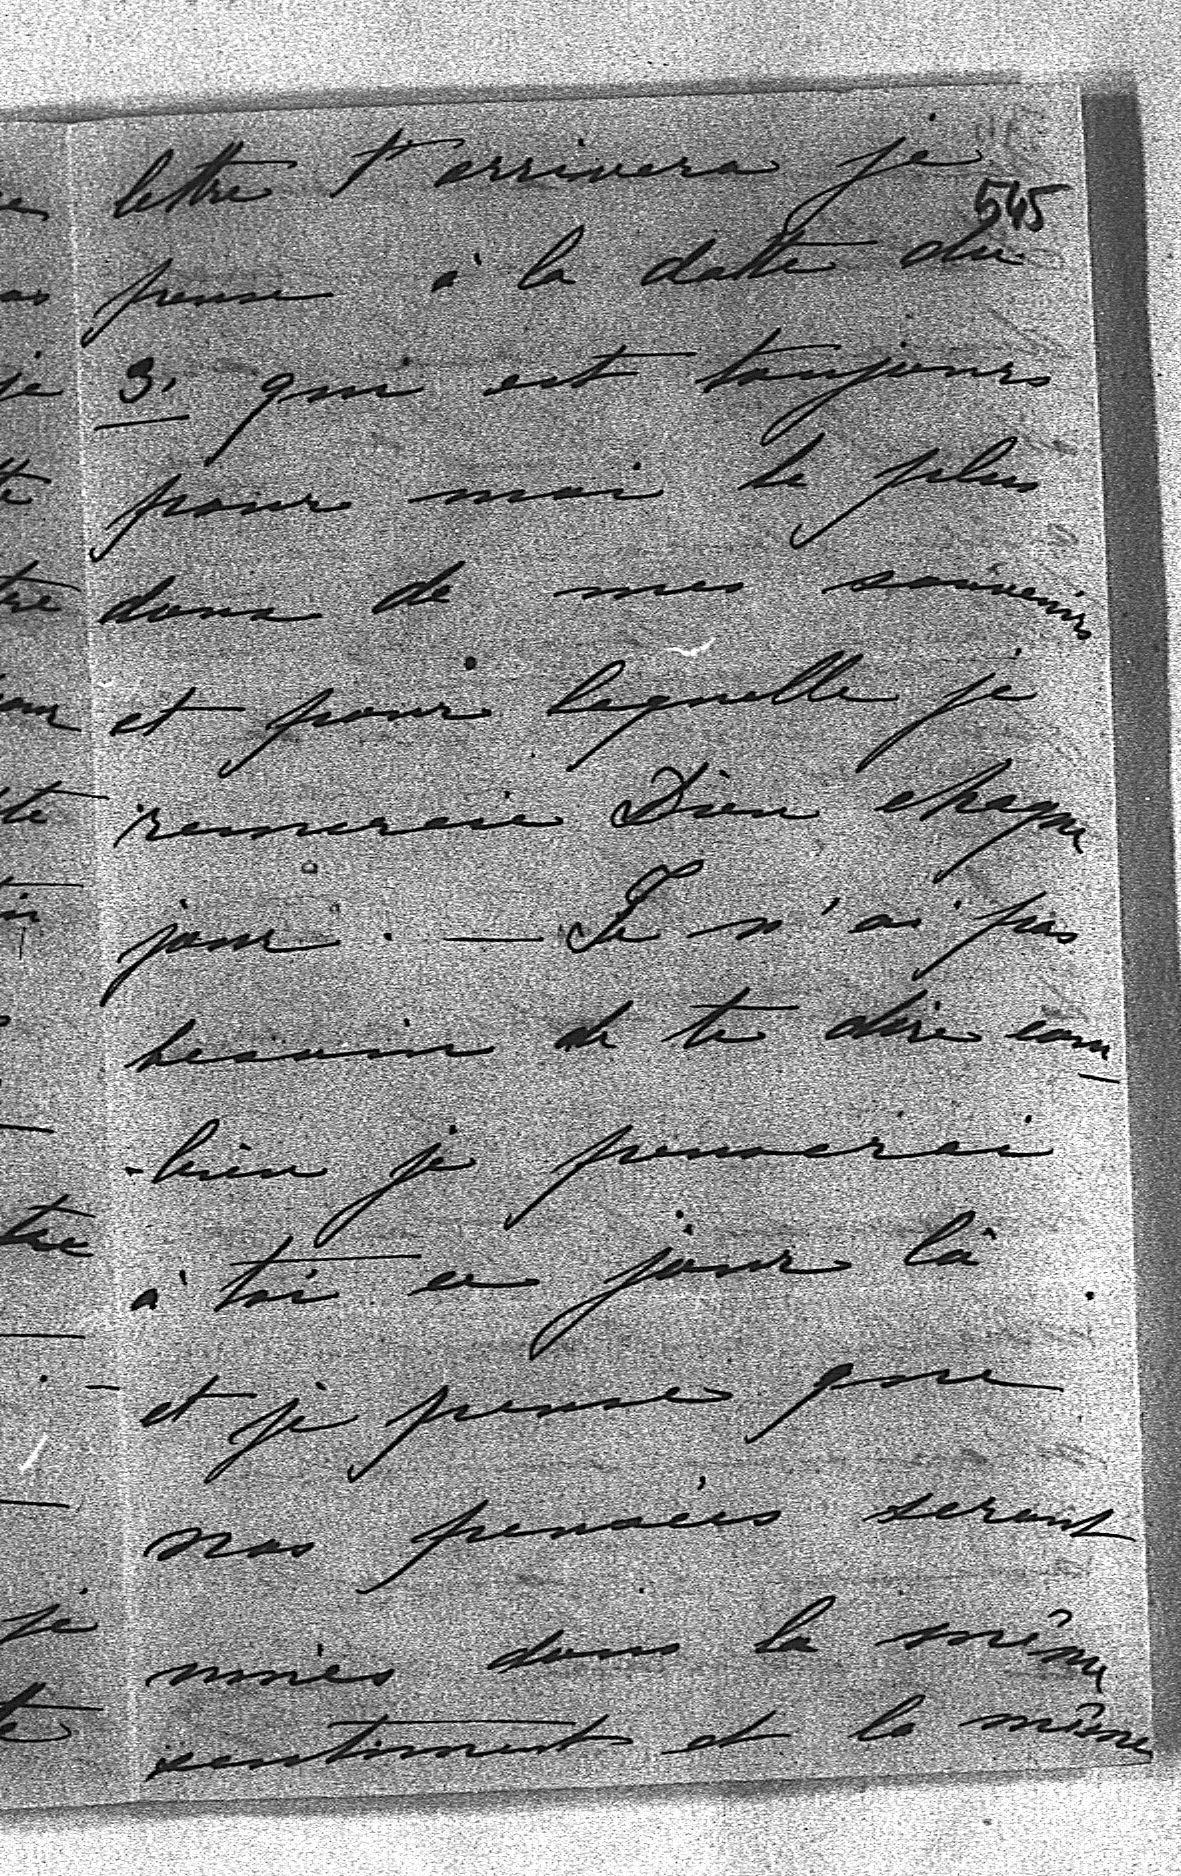 545
lettre t'arrivera je
pense à la datte du
3. qui est toujours
pour moi le plus
doux de mes souvenirs
et pour laquelle je
remercie Dieu chaque
jour. — Je n'ai pas
besoin de te dire com
-bien je penserai
à toi ce jour là
et je pense que
nos pensées seront
unies dans la même
sentiment et la même